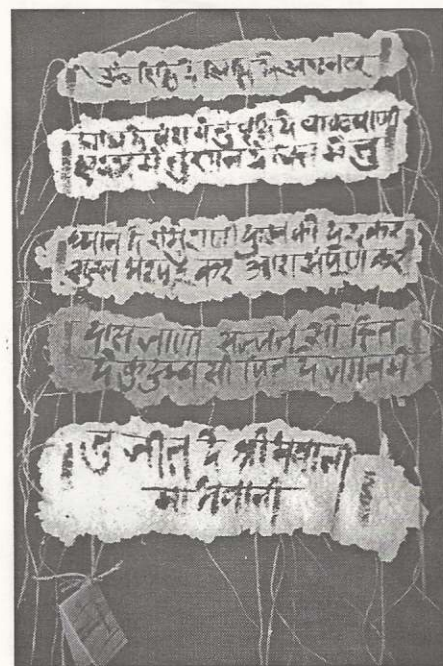 ॐ रिद्धि दे सिद्धि दे अष्ट नव
दे वंश में तु वृद्धि दे बाकबाणी
में तु ज्ञान दे चित्त में तु
ध्यान दे दुःख को दूर कर
सुख भरपूर कर आशा संपूर्ण कर
दास जाणी सज्जन सो हित
दे कुटुम्ब सो प्रित दे में
तु जीत दे श्री भवानी
मा भवानी